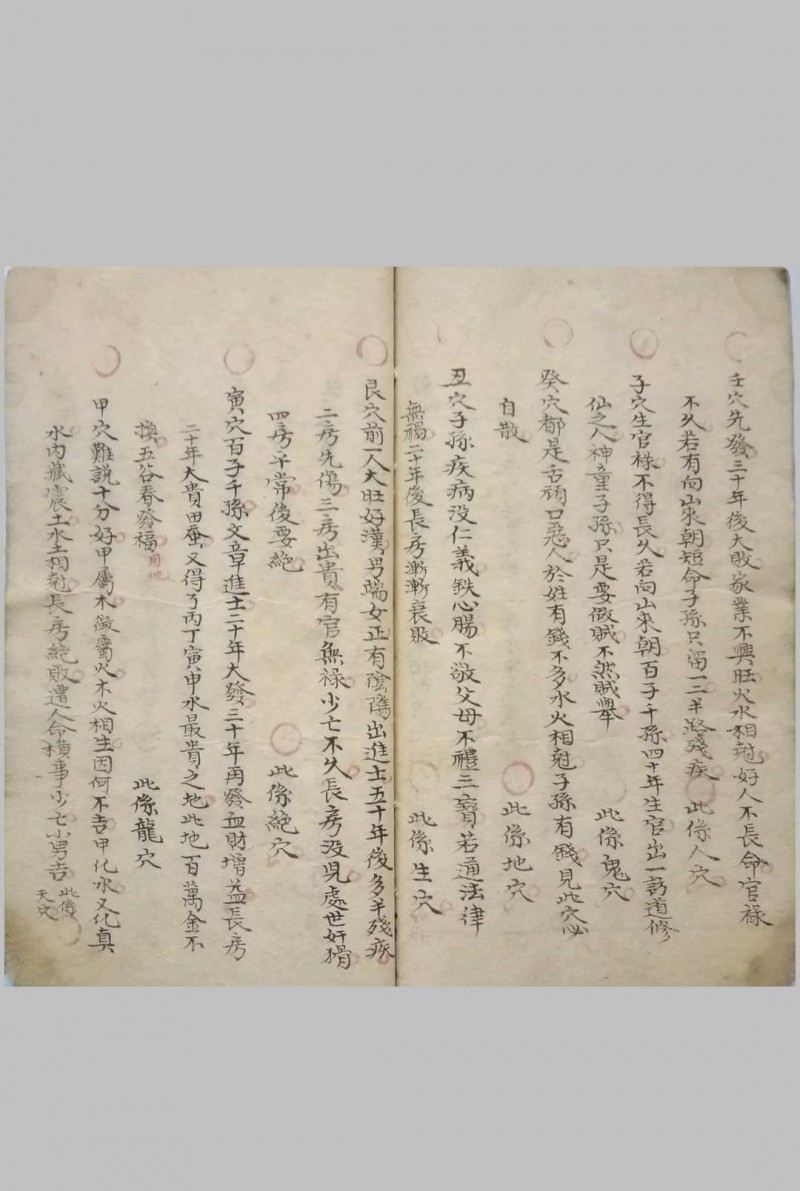 壬穴先發三十年後大敗家業不興旺火水相尅好人不長命官禄
不久若有向山來朝短命子孫只留一二半遂殘疾 此係人穴
子穴生官禄不得長久若向山來朝百子千孫四十年生官出一訪道修
仙之人神童子孫只是要做賊不然賊舉 此係鬼穴
癸穴都是舌禍口惡人於姓有錢不多水火相尅子孫有錢見此穴必
自散 此係地穴
丑穴子孫疾病没仁義鉄心腸不敬父母不禮三寶若通法律
無禍二十年後長房漸漸衰敗 此係生穴
艮穴前一人大旺好漢男端女正有陰隲出進士五十年後多半殘疾
二房先傷三房出貴有官無禄少亡不久長房没見處世奸猾
四房平常後要絶 此係絶穴
寅穴百子千孫文章進士二十年大發三十年再發血財增益長房
二十年大貴田蚕又得了丙丁寅申水最貴之地此地百萬金不
換五谷春發福用地 此係龍穴
甲穴難説十分好甲屬木微屬火木火相生因何不吉甲化水又化真
水内藏震土水土相尅長房絶敗遭人命横事少亡小男吉 此後天穴